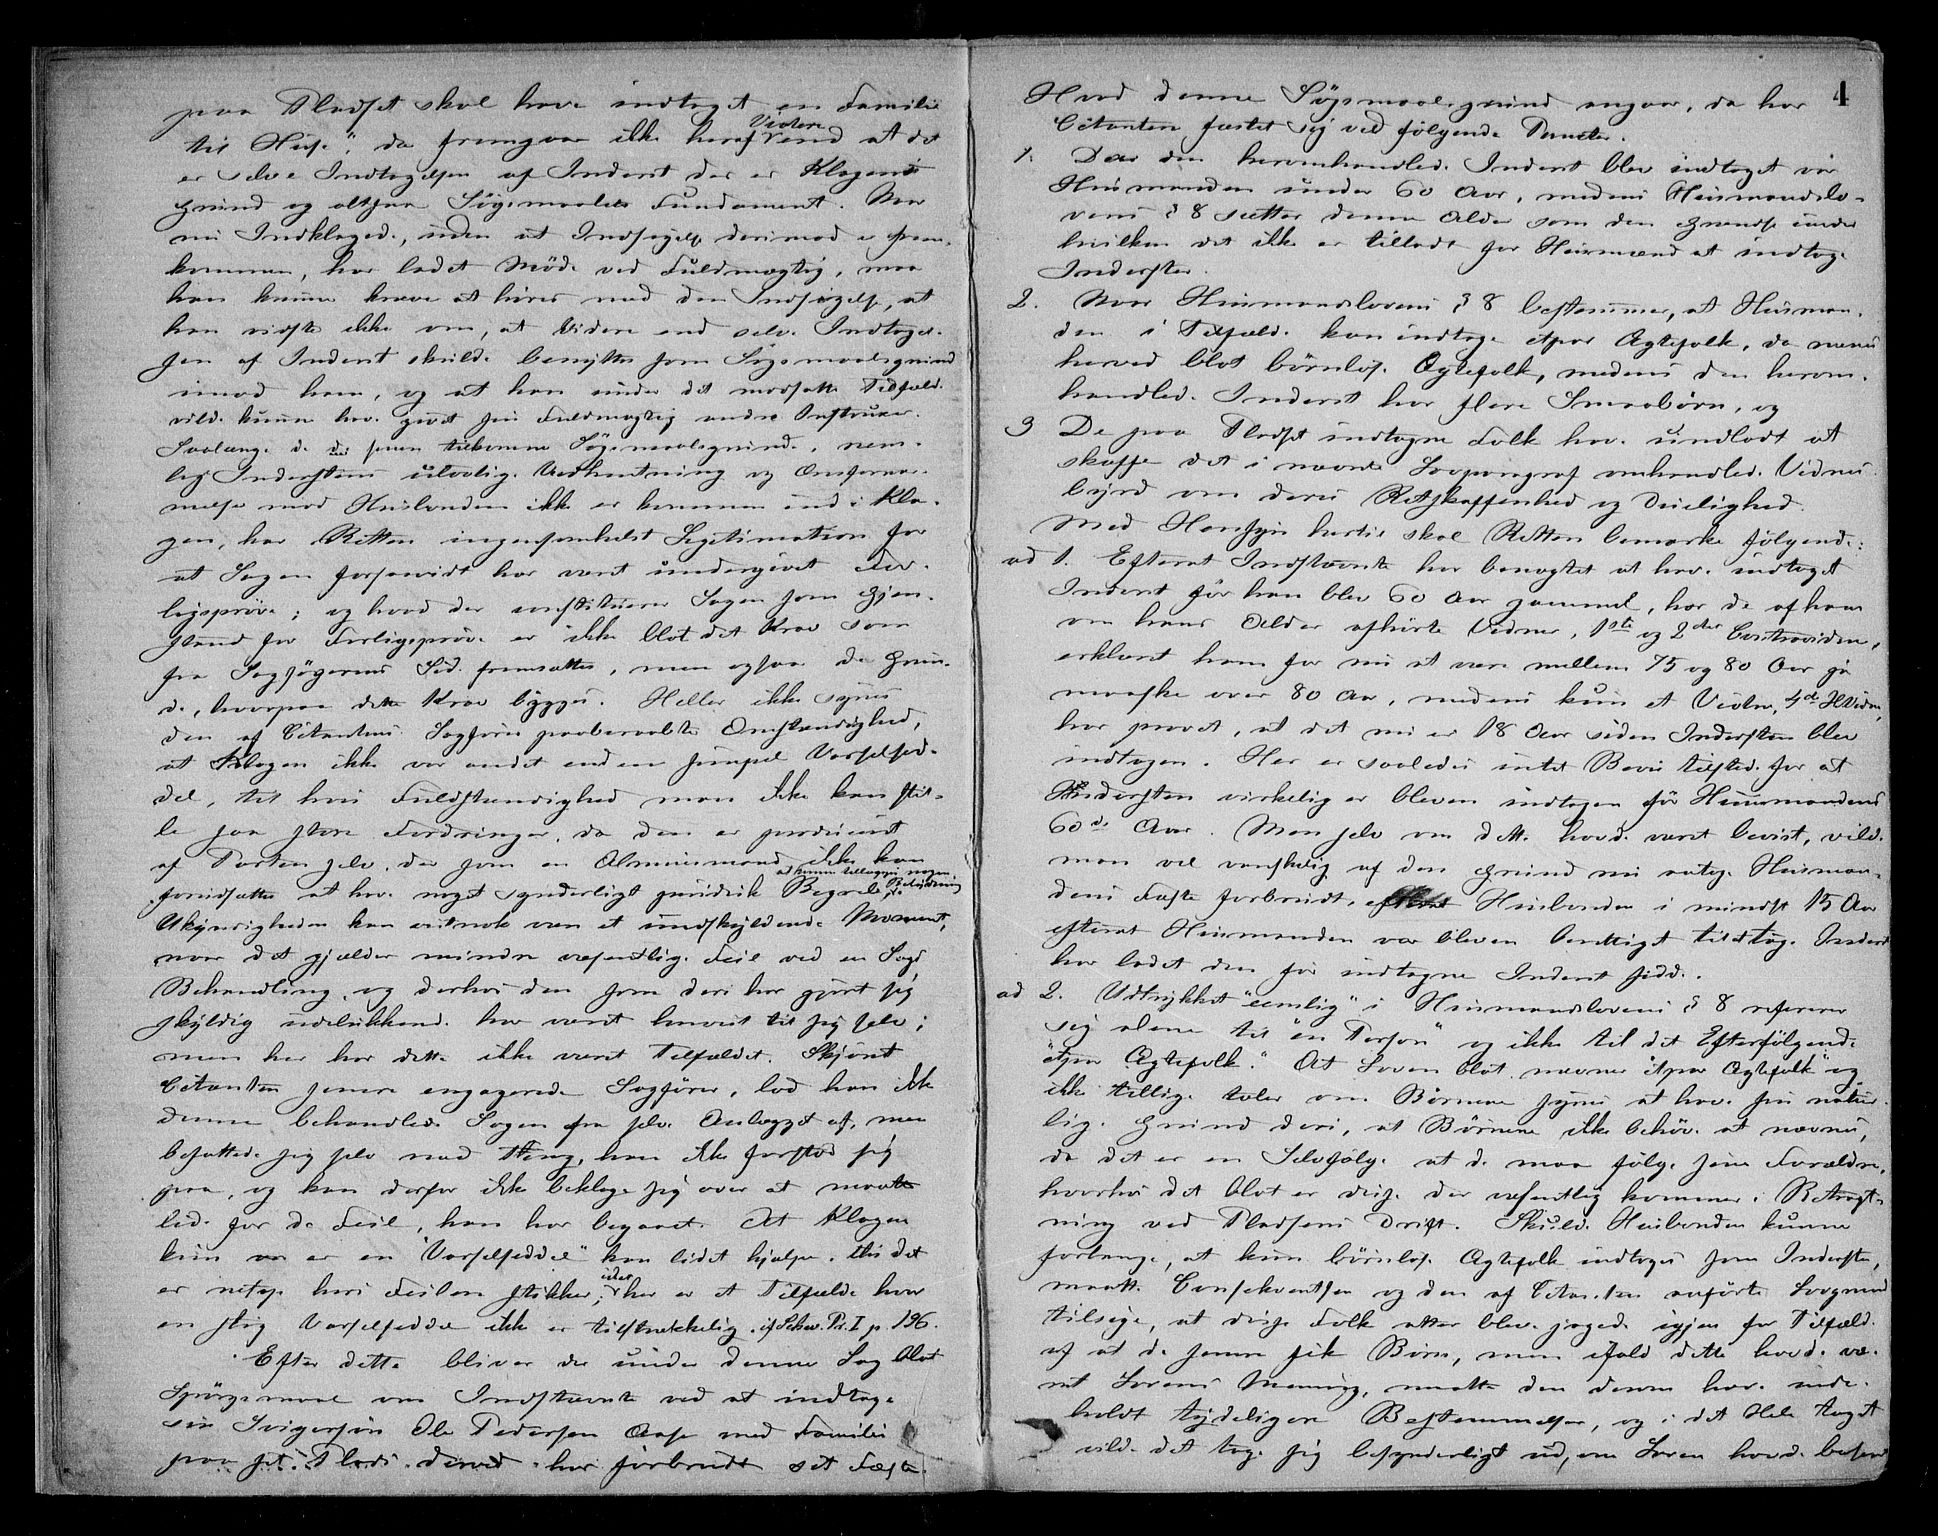 paa Pladset skal have indtaget en Familie
til Huse", da fremgaar ikke heraf Videre end at det
er selve Indtagelsen af Inderst der er Klagens
Grund og altsaa Søgsmaalets Fundament. Naar
nu Indklagede, uden at Indsigelse derimod er frem-
kommen, har ladet Møde ved Fuldmægtig, maa
han kunne kræve at høres med den Indsigelse, at
han vidste ikke om, at videre end selve Indtagel-
sen af Inderst skulde benyttes som Søgsmaalsgrund
imod ham, og at han under det modsatte Tilfælde
vilde kunne have givet sin Fuldmægtig andre Instruxer.
Saalænge de senere tilkomne Søgsmaalsgrunde, nem-
lig Inderstens ulovlige Vedhentning og Opførsel
mod Husbonden ikke er kommen ind i Kla-
gen, har Retten ingensomhelst Legitimation for
at Sagen forsaavidt har været undergivet For-
ligsprøve; og hvad der constituerer Sagen som Gjen-
stand for Forligsprøve er ikke blot det Krav som
fra Sagsøgerens Side fremsættes, men ogsaa de Grun-
de, hvorpaa dette Krav bygges. Heller ikke synes
den af Citantens Sagfører paaberaabte Omstændighed,
at Klagen ikke var andet end en simpel Varselsed-
del, til hvis Fuldstændighed man ikke kan stil-
le saa store Fordringer, da den er forfattet
af Parten selv, der som en Almuesmand ikke kan
forudsættes at have noget synderligt juridisk Begreb, at kunne tillægges nogen Betydning
Ukyndigheden kan vistnok være et undskyldende Moment,
naar det gjælder mindre væsentlige Feil ved en Sags
Behandling, og derhos den som deri har gjort sig
skyldig udelukkende har været henvist til sig selv;
men her har dette ikke været Tilfældet. Skjønt
Citanten senere engagerede Sagfører, lod han ikke
denne behandle Sagen fra selve Anlægget af, men
befattede sig selv med Ting, han ikke forstod sig
paa, og kan derfor ikke beklage sig over at maatte
lide for de Feil, han har begaaet. At Klagen
kun er en "Varselseddel" kan lidet hjælpe. Thi det
er netop heri Feilen stikker, idet her er et Tilfælde hvor
en slig Varselseddel ikke er tilstrækkelig. cf Schw. Pr. I p 196.
Efter dette bliver der under denne Sag blot
Spørgsmaal om Indstævnte ved at indtage
sin Svigersøn Ole Pedersen Aase med Familie
paa sit Plads derved har forbrudt sit Fæste.
4
Hvad denne Søgsmaalsgrund angaar, da har
Citanten fæstet sig ved følgende Puncter.
1. Da den heromhandlede Inderst blev indtaget var
Husmanden under 60 Aar, medens Husmandslo-
vens § 8 sætter denne Alder som den Grændse under
hvilken det ikke er tilladt for Husmænd at indtage
Inderster.
2. Naar Husmandslovens § 8 bestemmer, at Husman-
den i Tilfælde kan indtage etpar Ægtefolk, da menes
herved blot børnløse Ægtefolk, medens den herom-
handlede Inderst har flere Smaabørn, og
3 De paa Pladset indtagne Folk have undladt at
skaffe det i nævnte Lovparagraf omhandlede Vidnes-
byrd om deres Retskaffenhed og Duelighed.
Med Hensyn hertil skal Retten bemærke følgende:
ad 1. Efterat Indstævnte har benægtet at have indtaget
Inderst før han blev 60 Aar gammel, har de af ham
om hans Alder afhørte Vidner, 1ste og 2det Contravidne,
erklæret ham for nu at være mellem 75 og 80 Aar ja
maaske over 80 Aar, medens kun et Vidne, 4de HVidne,
har provet, at det nu er 18 Aar siden Indersten blev
indtagen. Her er saaledes intet Bevis tilstede for at
Indersten virkelig er bleven indtagen før Husmandens
60de Aar. Men selv om dette havde været bevist, vilde
man vel vanskelig af den Grund nu antage Husman-
dens Fæste forbrudt, efterat Husbonden i mindst 15 Aar
efterat Husmanden var bleven berettiget til at tage Inderst
har ladet den før indtagne Inderst sidde.
ad 2. Udtrykket "enslig" i Husmandslovens § 8 refererer
sig alene til "en Person" og ikke til det Efterfølgende
"etpar Ægtefolk". At Loven blot nævner "etpar Ægtefolk" og
ikke tillige taler om Børnene synes at have sin natur-
lige Grund deri, at Børnene ikke behøve at nævnes,
da det er en Selvfølge at de maa følge sine Forældre,
hvorhos det blot er disse der væsentlig kommer i Betragt-
ning ved Pladsens Drift. Skulde Husbonden kunne
forlange, at kun børnløse Ægtefolk indtoges som Inderster,
maatte Consekventsen og den af Citanten anførte Lovgrund
tilsige, at disse Folk atter bleve jagede igjen for Tilfælde
af at de senere fik Børn, men ifald dette havde væ-
ret Lovens Mening, maatte den derom have inde-
holdt tydeligere Bestemmelser, og i det Hele taget
vilde det tage sig besynderligt ud, om Loven havde